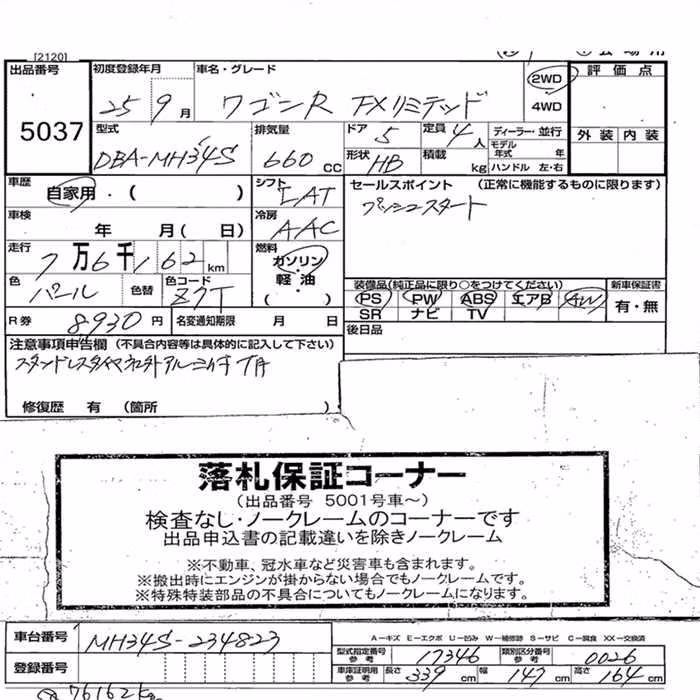 [2120]
出品番号 初度登録年月 車名・グレード 2WD 評価点
5037 25 9月 ワゴンR FXリミテッド 4WD
外装 内装
型式 排気量 ドア 5 定員 4人 ディーラー・並行
モデル年式 年
DBA-MH34S 660cc 形状 HB 積載 kg ハンドル 左・右
車歴 自家用・( ) シフト LAT セールスポイント (正常に機能するものに限ります)
プッシュスタート
車検 年 月( 日) 冷房 AAC
走行 7万6千162km 燃料 ガソリン・軽油・( )
色 パール 色替 色コード Z7T
装備品(純正品に限り○をつけてください) 新車保証書
PS PW ABS エアB AW 有・無
SR ナビ TV
R券 8,930円 名変通知期限 月 日 後日品
注意事項申告欄 (不具合内容等は具体的に記入して下さい)
修復歴 有 (箇所 )
落札保証コーナー
(出品番号 5001号車～)
検査なし・ノークレームのコーナーです
出品申込書の記載違いを除きノークレーム
※不動車、冠水車など災害車も含まれます。
※搬出時にエンジンが掛からない場合でもノークレームです。
※特殊特装部品の不具合についてもノークレームになります。
車台番号 MH34S-234823
A－キズ E－エクボ U－凹み W－補修跡 S－サビ C－腐食 XX－交換済
型式指定番号 参考 17346 類別区分番号 参考 0026
登録番号 車庫証明用 参考 長さ 339cm 幅 147cm 高さ 164cm
76162km